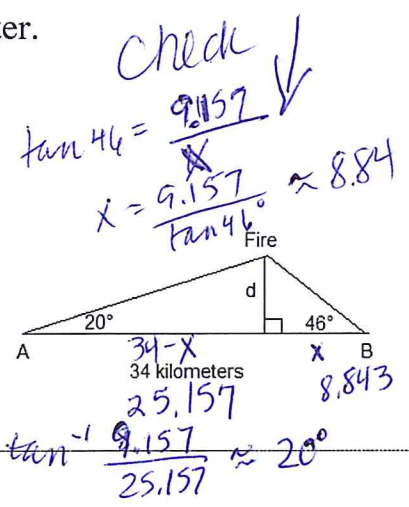 ter.
Check
tan 46 = 9.157 / X
x = 9.157 / tan 46° ≈ 8.84
Fire
d
20°
46°
A
34-X
X
B
34 kilometers
25.157
8.843
tan⁻¹ 9.157 / 25.157 ≈ 20°